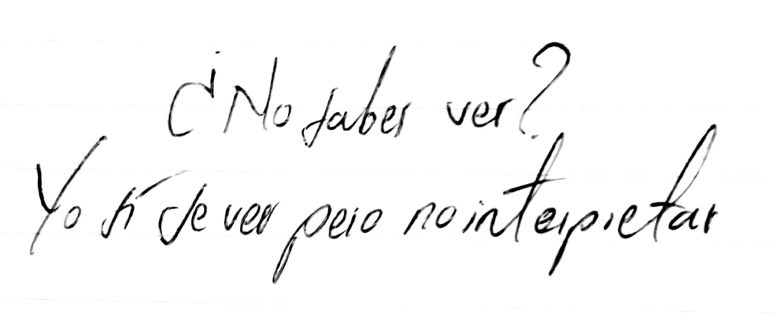 ¿No saber ver?
Yo sí se ver pero no interpretar